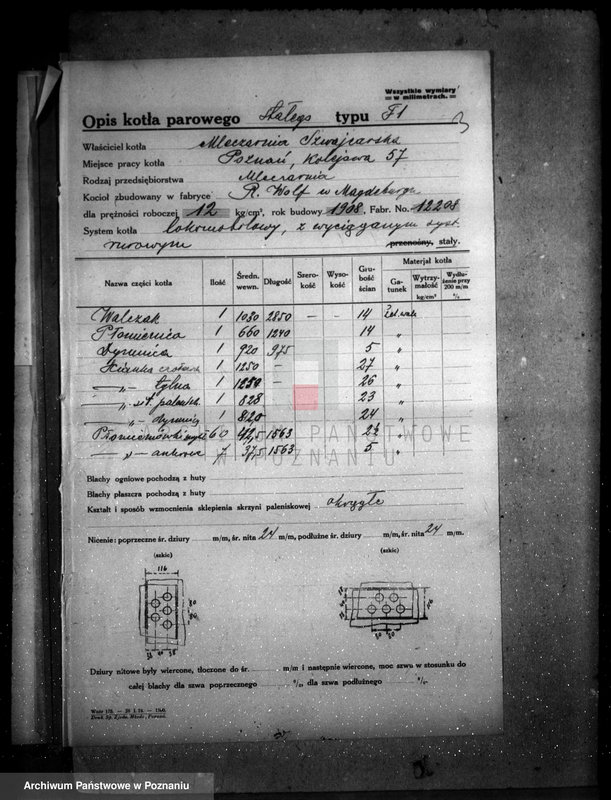 Wszystkie wymiary
w milimetrach.
Opis kotła parowego Stałego typu F1
Właściciel kotła Mleczarnia Szwajcarska
Miejsce pracy kotła Poznań, Kolejowa 57
Rodzaj przedsiębiorstwa Mleczarnia
Kocioł zbudowany w fabryce R. Wolf w Magdeburgu
dla prężności roboczej 12 kg/cm², rok budowy 1908, Fabr. No. 12208
System kotła lokomobilowy, z wyciąganym syst.
rurowym przenośny, stały.
Nazwa części kotła Ilość Średn. wewn. Długość Szerokość Wysokość Grubość ścian Materjał kotła
Gatunek Wytrzymałość kg/cm² Wydłużenie przy 200 m/m %
Walczak 1 1030 2850 — — 14
Płomienica 1 660 1240 14 "
Dymnica 1 920 975 5 "
Ścianka czołowa 1 1250 — 27 "
— „ — tylna 1 1250 — 26 "
— „ — 1 828 23 "
— „ — dymnicy 1 820 24 "
Płomieniówki 60 42,5 1563 2½ "
— „ — ankrowe 7 37,5 1563 5 "
Blachy ogniowe pochodzą z huty
Blachy płaszcza pochodzą z huty
Kształt i sposób wzmocnienia sklepienia skrzyni paleniskowej okrągłe
Nicenie: poprzeczne śr. dziury m/m, śr. nita 24 m/m, podłużne śr. dziury m/m, śr. nita 24 m/m.
(szkic) (szkic)
116
Dziury nitowe były wiercone, tłoczone do śr. m/m i następnie wiercone, moc szwu w stosunku do
całej blachy dla szwa poprzecznego %, dla szwa podłużnego %.
ARCHIWUM PAŃSTWOWE
W POZNANIU
Archiwum Państwowe w Poznaniu